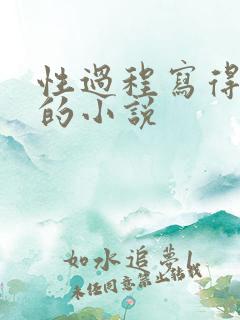 性過程寫得
的小說
如水追夢1
未經同意禁止轉載